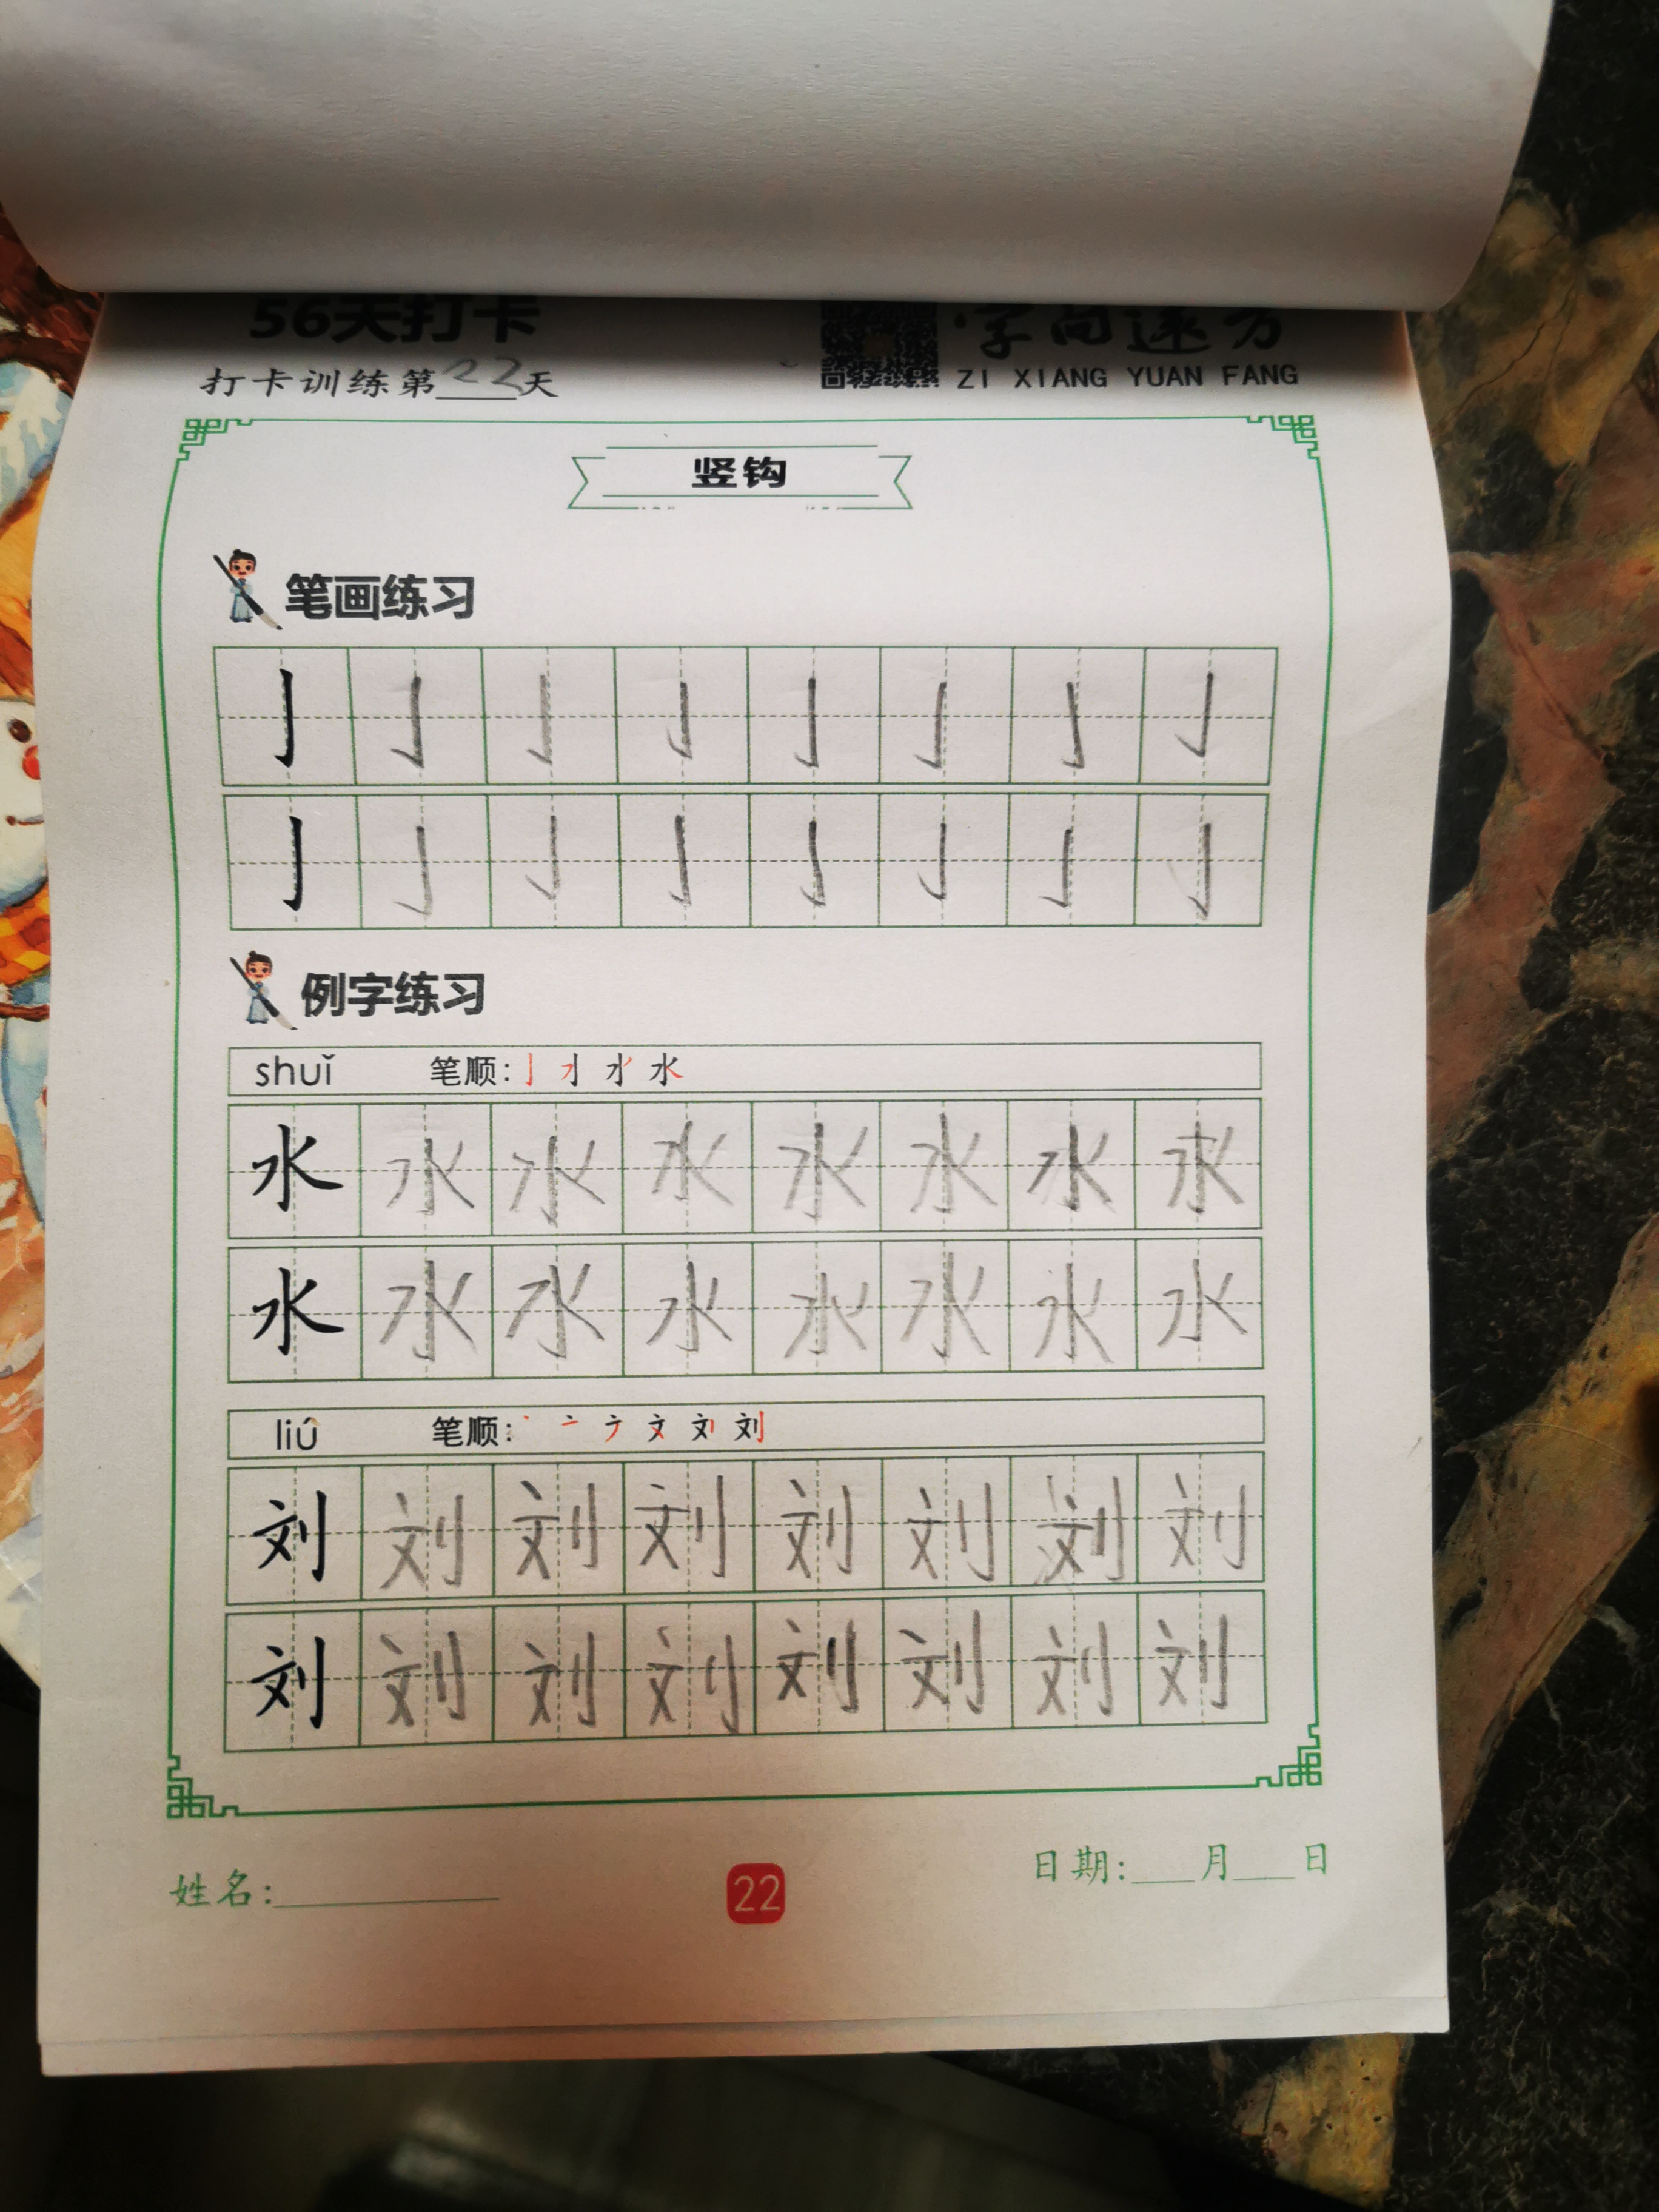 56天打卡
打卡训练第22天
字向远方
ZI XIANG YUAN FANG
竖钩
笔画练习
亅 亅 亅 亅 亅 亅 亅 亅
亅 亅 亅 亅 亅 亅 亅 亅
例字练习
shuǐ 笔顺:
水 水 水 水 水 水 水 水
水 水 水 水 水 水 水 水
liú 笔顺:
刘 刘 刘 刘 刘 刘 刘 刘
刘 刘 刘 刘 刘 刘 刘 刘
姓名:
22
日期:___月___日